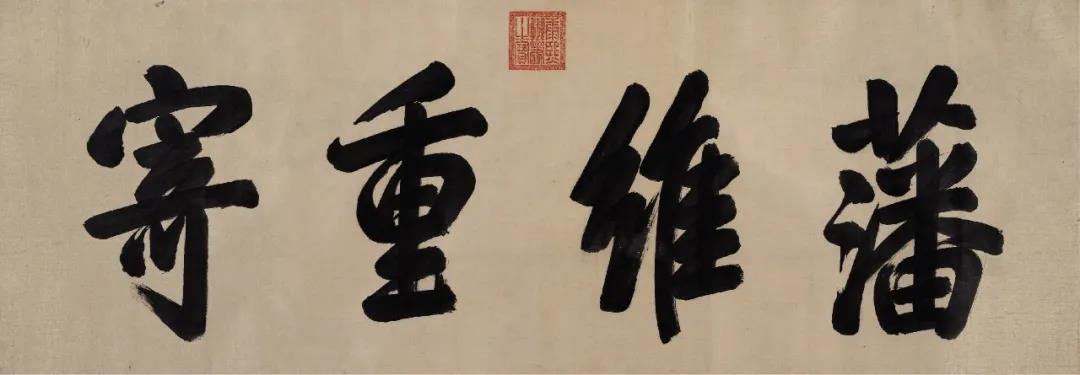 藩維重寄
康熙御筆之寶